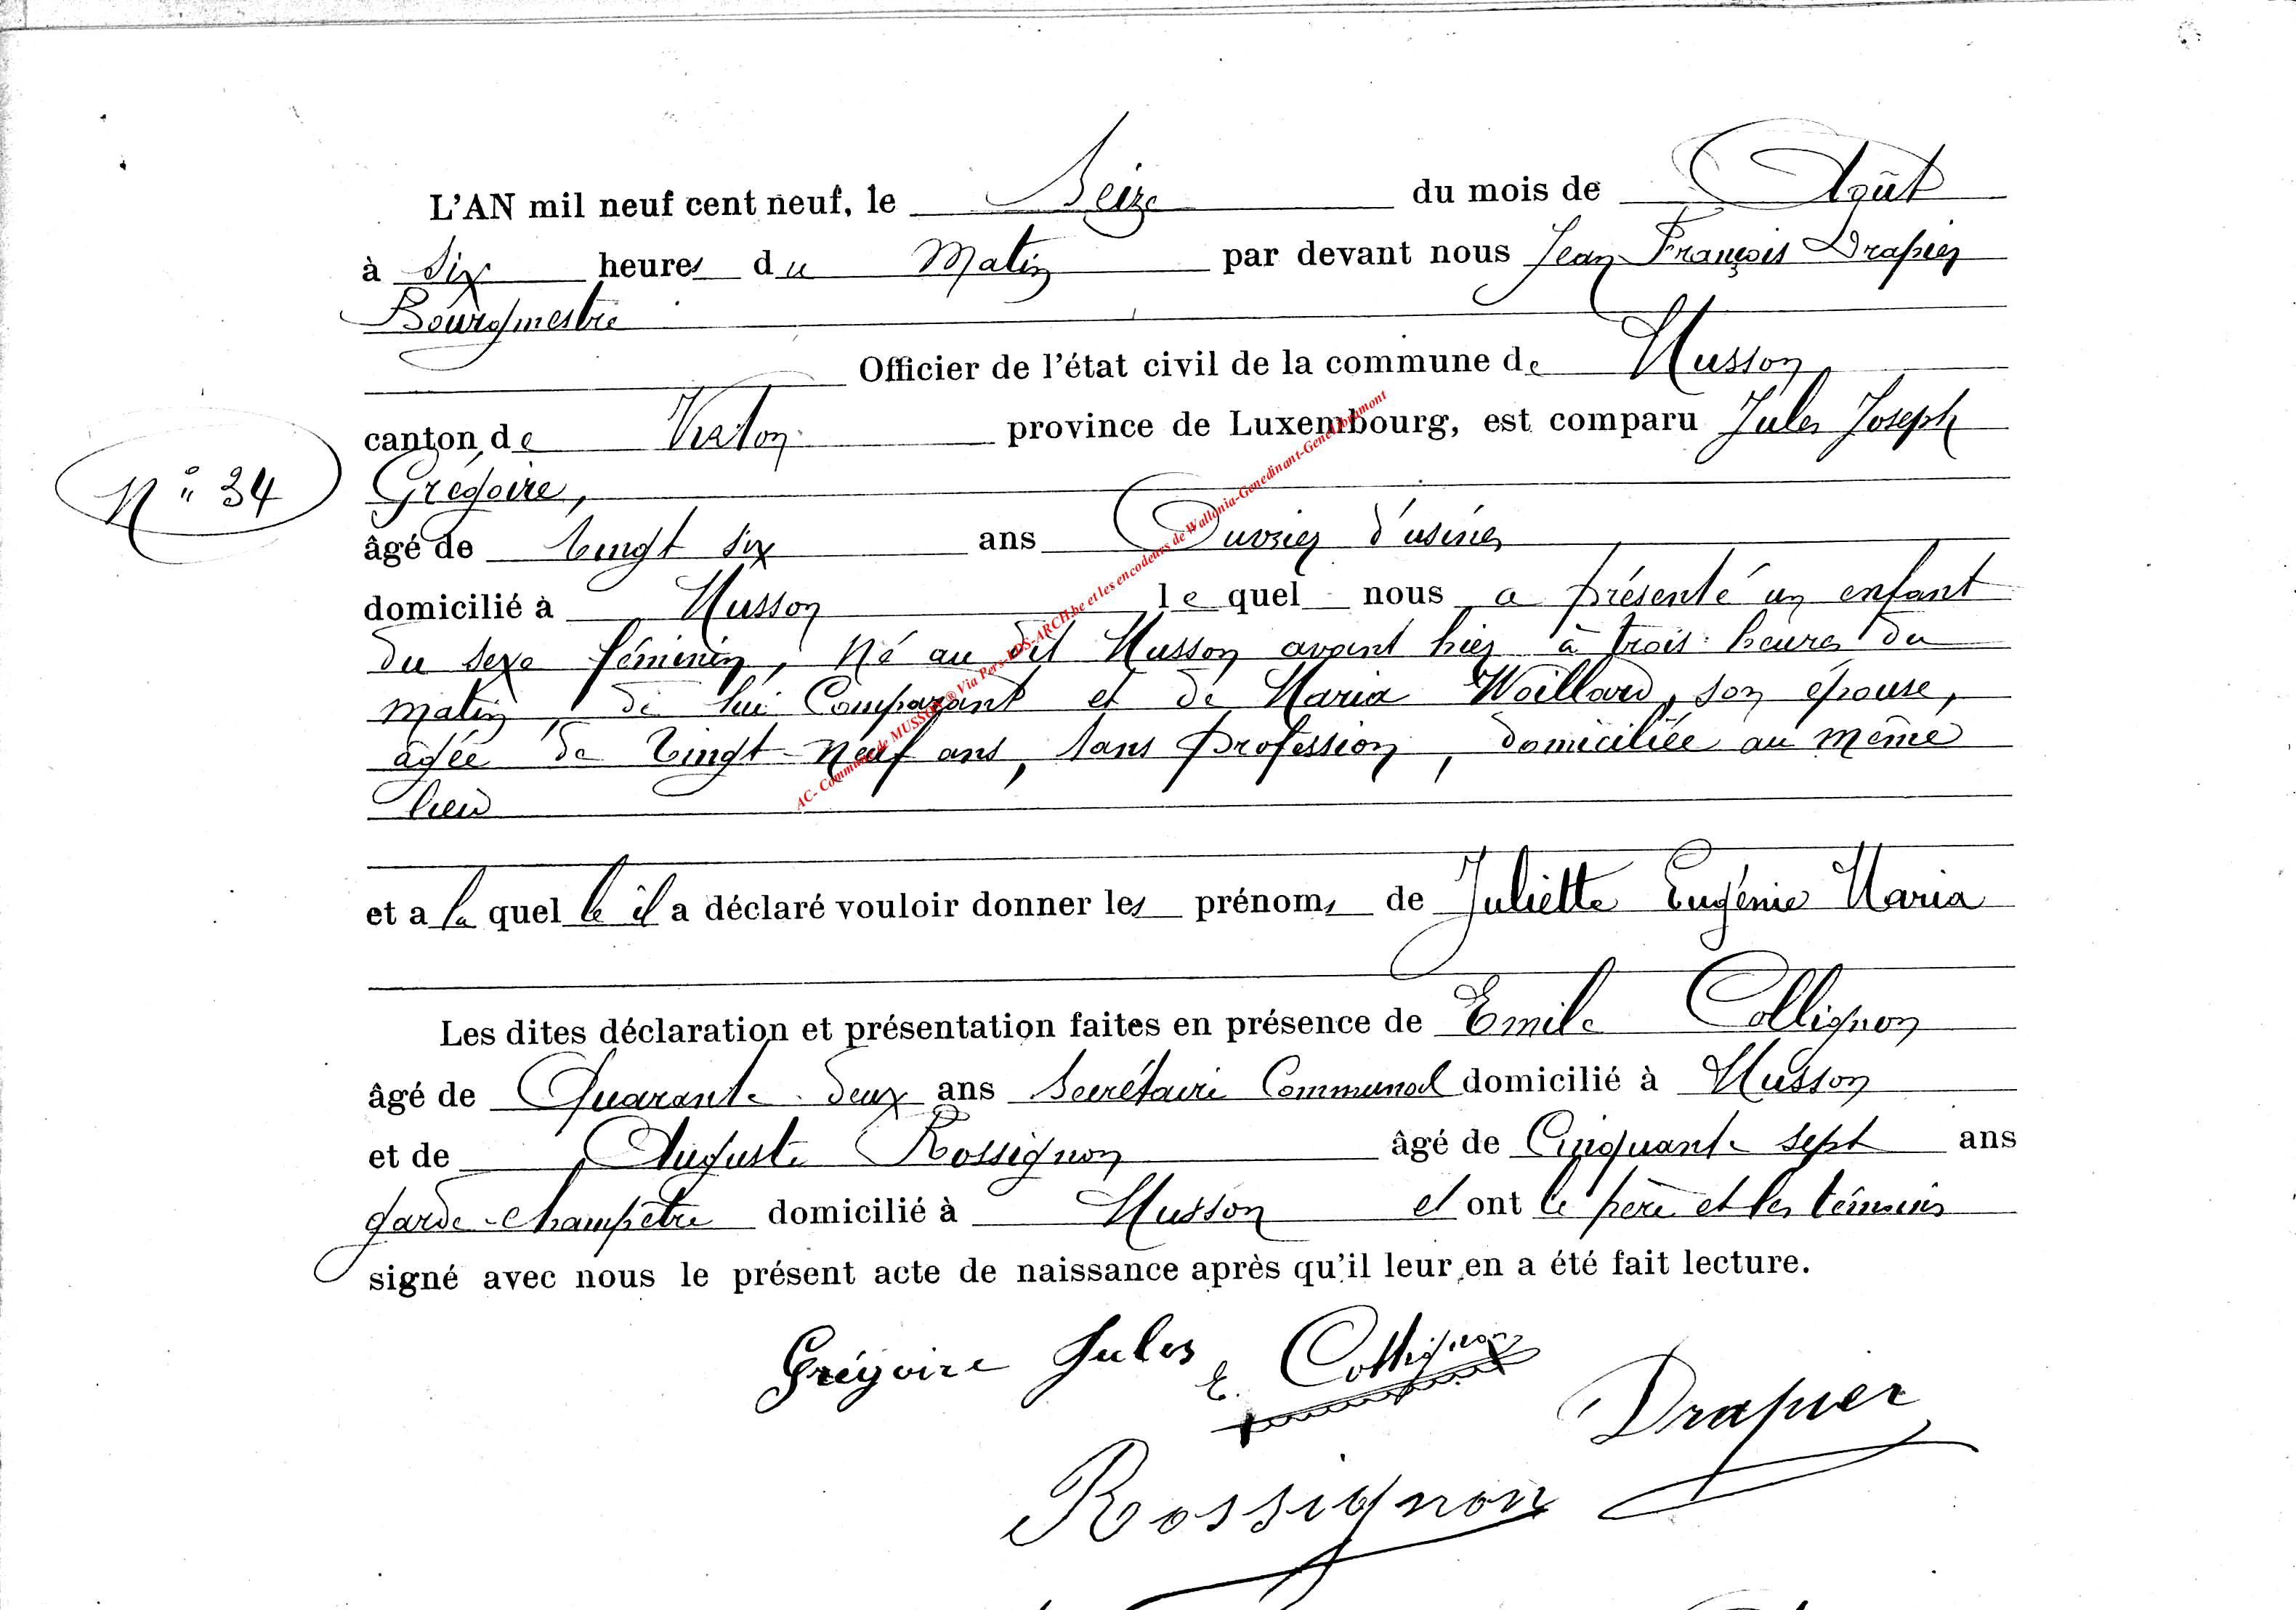 L'AN mil neuf cent neuf, le Seize du mois de Août
à Six heures du Matin par devant nous Jean François Drapier
Bourgmestre
Officier de l'état civil de la commune de Musson
canton de Virton province de Luxembourg, est comparu Jules Joseph
N° 34
Grégoire,
âgé de Vingt six ans Ouvrier d'usines
domicilié à Musson le quel nous a présenté un enfant
du sexe féminin, né au dit Musson avant hier à trois heures du
matin, de lui Comparant et de Maria Woillard, son épouse,
âgée de Vingt-neuf ans, sans profession, domiciliée au même
lieu
et a la quel le il a déclaré vouloir donner les prénoms de Juliette Eugénie Maria
Les dites déclaration et présentation faites en présence de Emile Collignon
âgé de Quarante deux ans Secrétaire Communal domicilié à Musson
et de Auguste Rossignon âgé de Cinquante sept ans
garde-champêtre domicilié à Musson et ont le père et les témoins
signé avec nous le présent acte de naissance après qu'il leur en a été fait lecture.
Grégoire Jules E. Collignon
Drapier
Rossignon
AC- Commune de MUSSON® Via Pers-LDS-ARCH.be et les encodeurs de Wallonia-Genedinant-GeneLibramont